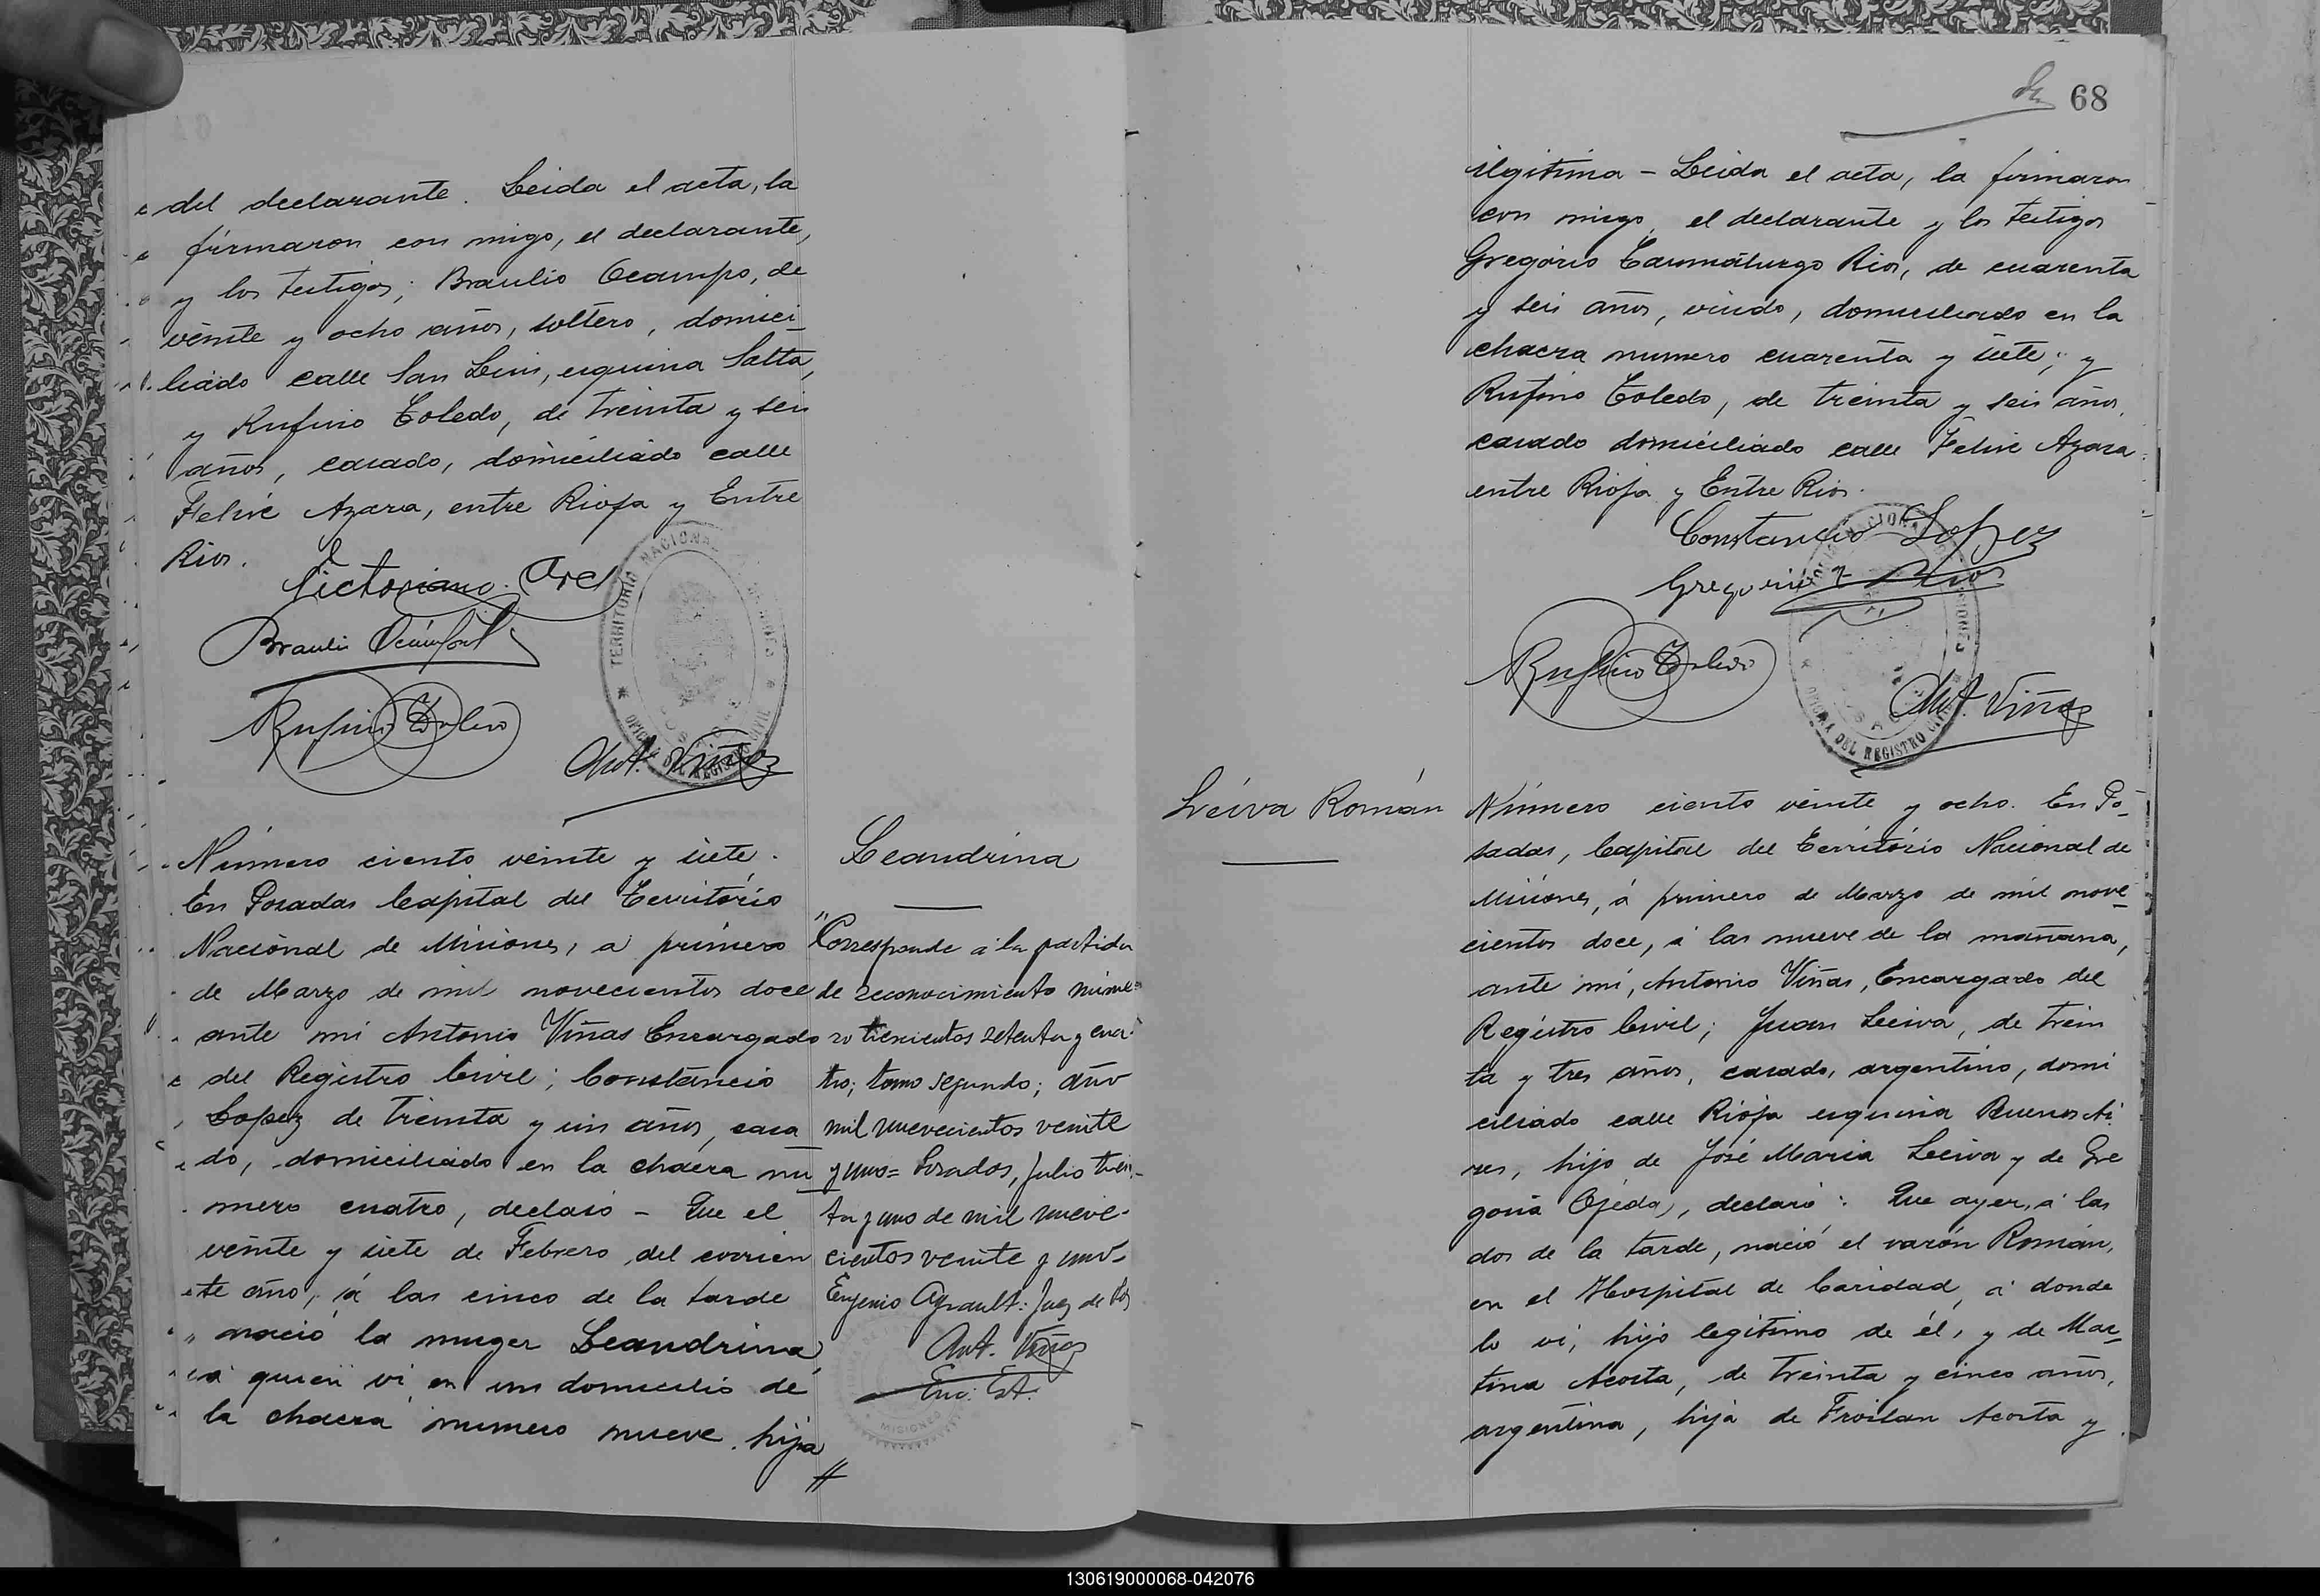 del declarante. Leida el acta, la
firmaron con migo, el declarante,
y los testigos; Braulio Ocampo, de
veinte y ocho años, soltero, domici-
liado calle San Luis, esquina Salta,
y Rufino Toledo, de treinta y seis
años, casado, domiciliado calle
Felix Azara, entre Rioja y Entre
Rios.
Victoriano
Braulio Ocampo
Rufino Toledo
Ant. Viñas
TERRITORIO NACIONAL DE MISIONES
OFICINA DEL REGISTRO CIVIL
POSADAS
Número ciento veinte y siete.
En Posadas Capital del Territorio
Nacional de Misiones, a primero
de Marzo de mil novecientos doce
ante mi Antonio Viñas Encargado
del Registro Civil; Constancio
Lopez de treinta y un años, casa
do, domiciliado en la chacra nu
mero cuatro, declaró - Que el
veinte y siete de Febrero del corrien
te año, á las cinco de la tarde
nació la muger Leandrina,
á quien vi en un domicilio de
la chacra numero nueve, hija
//
Leandrina
"Corresponde á la partida
de reconocimiento núme-
ro trescientos setenta y cua-
tro; tomo segundo; año
mil nuevecientos veinte
y uno = Posadas, Julio trein-
ta y uno de mil nueve-
cientos veinte y uno-
Eugenio
Ant. Viñas
Enc. Est.
MISIONES
68
ilegitima - Leida el acta, la firmaron
con migo, el declarante y los testigos
Gregorio Taumaturgo Rios, de cuarenta
y seis años, viudo, domiciliado en la
chacra numero cuarenta y siete; y
Rufino Toledo, de treinta y seis años,
casado domiciliado calle Felix Azara
entre Rioja y Entre Rios.
Constancio Lopez
Gregorio T. Rios
Rufino Toledo
Ant. Viñas
OFICINA DEL REGISTRO CIVIL
Leiva Román
Número ciento veinte y ocho. En Po-
sadas, Capital del Territorio Nacional de
Misiones, á primero de Marzo de mil nove-
cientos doce, á las nueve de la mañana,
ante mi, Antonio Viñas, Encargado del
Registro Civil; Juan Leiva, de trein
ta y tres años, casado, argentino, domi
ciliado calle Rioja esquina Buenos Ai-
res, hijo de José Maria Leiva y de Gre
goria Ojeda, declaró: Que ayer, á las
dos de la tarde, nació el varón Román,
en el Hospital de Caridad, á donde
lo vi, hijo legitimo de él, y de Mar-
tina Acosta, de treinta y cinco años,
argentina, hija de Froilan Acosta y
130619000068-042076